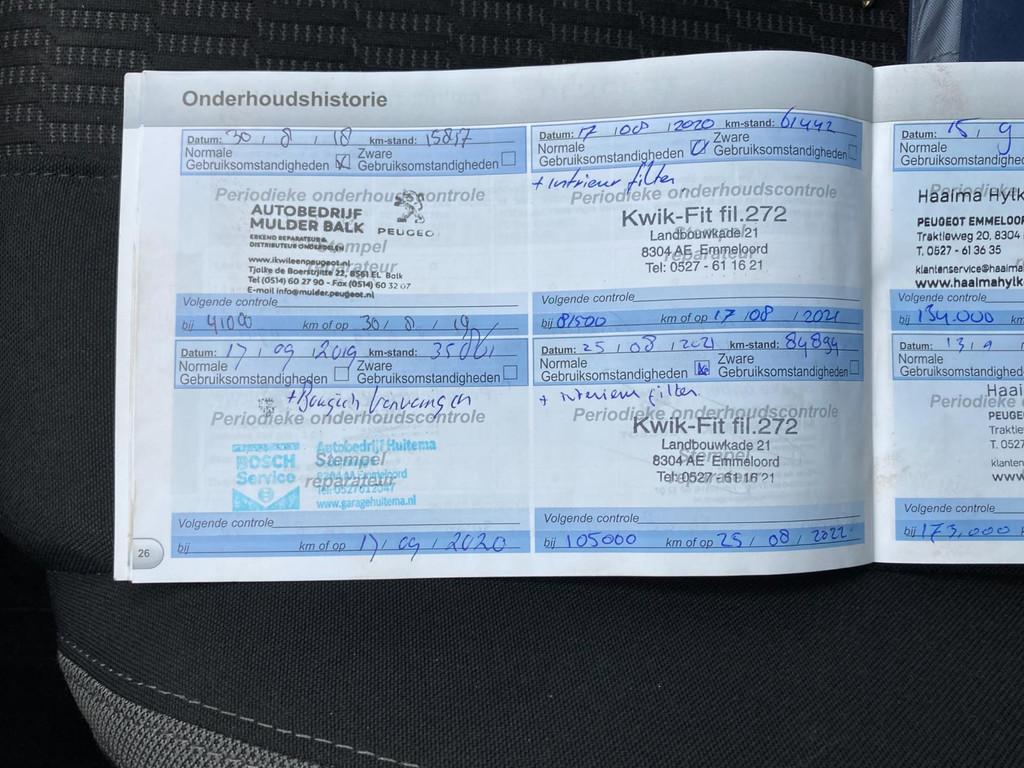 Onderhoudshistorie
Datum: 30 / 8 / 18 km-stand: 15817
Normale
Gebruiksomstandigheden
Zware
Gebruiksomstandigheden
Periodieke onderhoudscontrole
AUTOBEDRIJF
MULDER BALK
PEUGEO
ERKEND REPARATEUR &
DISTRIBUTEUR ONDERDELEN
Stempel
reparateur
www.ikwileenpeugeot.nl
Tjalke de Boerstrjitte 22, 8561 EL Balk
Tel (0514) 60 27 90 - Fax (0514) 60 32 07
E-mail info@mulder.peugeot.nl
Volgende controle
bij 41000 km of op 30 / 8 / 19
Datum: 17 / 09 / 2019 km-stand:
Normale
Gebruiksomstandigheden
Zware
Gebruiksomstandigheden
Periodieke onderhoudscontrole
BOSCH
Service
Autobedrijf Huitema
Stempel
reparateur
Emmeloord
www.garagehuitema.nl
Volgende controle
bij km of op 17 / 09 / 2020
26
Datum: 17 / 08 / 2020 km-stand: 61442
Normale
Gebruiksomstandigheden
Zware
Gebruiksomstandigheden
+ intrieur filter
Periodieke onderhoudscontrole
Kwik-Fit fil.272
Landbouwkade 21
8304 AE Emmeloord
reparateur
Tel: 0527 - 61 16 21
Volgende controle
bij 81500 km of op 17 / 08 / 2021
Datum: 25 / 08 / 2021 km-stand: 84894
Normale
Gebruiksomstandigheden
Zware
Gebruiksomstandigheden
+ interieur filter
Periodieke onderhoudscontrole
Kwik-Fit fil.272
Landbouwkade 21
Stempel
8304 AE Emmeloord
reparateur
Tel: 0527 - 61 16 21
Volgende controle
bij 105000 km of op 25 / 08 / 2022
Datum: 15 / 9
Normale
Gebruiksomstandighed
Periodieke
Haaima Hylk
PEUGEOT EMMELOOR
Traktieweg 20, 8304
T. 0527 - 61 36 35
klantenservice@haaima
www.haaimahylk
Volgende controle
bij 134.000 km
Datum: 13 / 9
Normale
Gebruiksomstandighed
Periodieke
Haai
PEUGE
Traktie
T. 0527
klanten
www
Volgende controle
bij 173.000